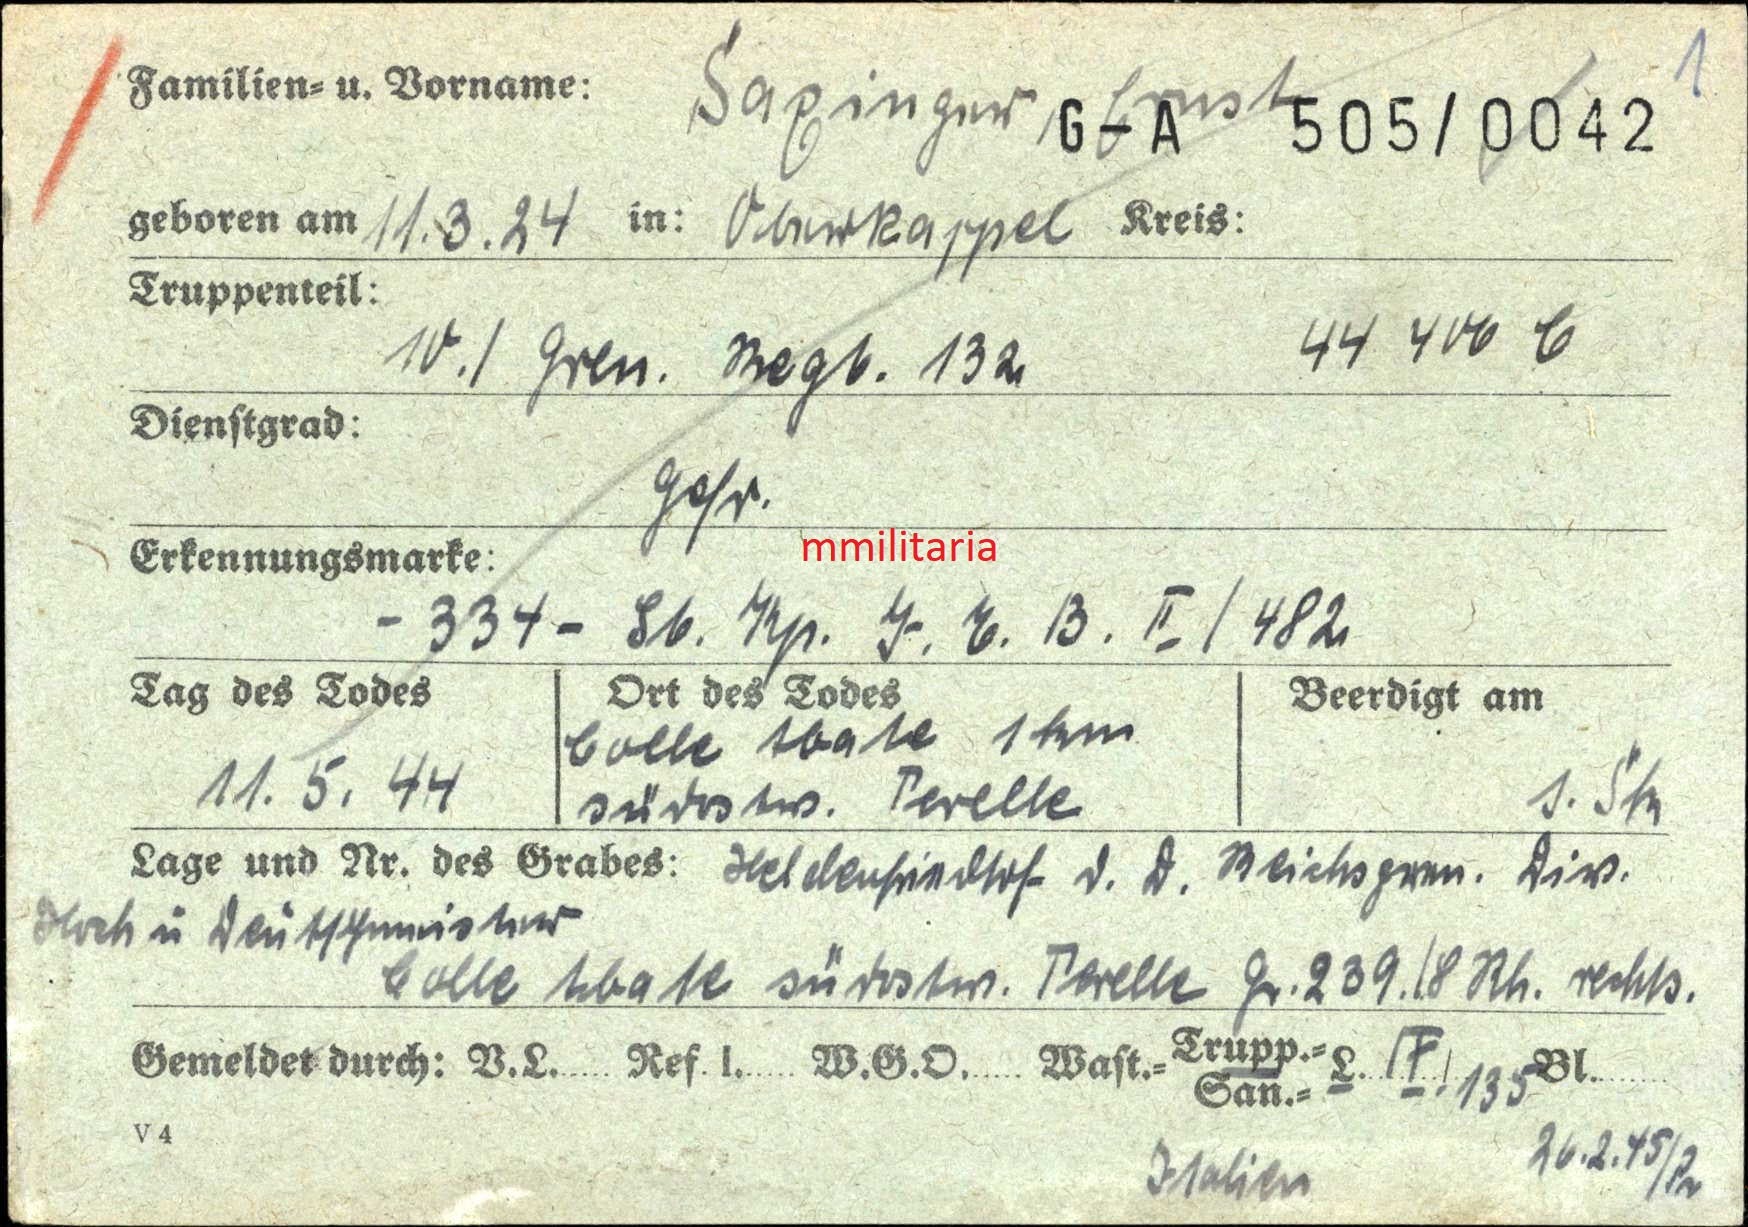 1
Familien- u. Vorname: Saxinger, Ernst
G-A 505/0042
geboren am 11.3.24 in: Oberkappel Kreis:
Truppenteil:
10./ Gren. Regt. 132 44 406 C
Dienstgrad:
Gefr.
mmilitaria
Erkennungsmarke:
- 334 - St. Kp. J. E. B. II / 482
Tag des Todes Ort des Todes Beerdigt am
Colle Abate 1 km
11. 5. 44 südostw. Terelle
Lage und Nr. des Grabes: Heldenfriedhof d. D. Reichsgren. Div.
Hoch u Deutschmeister
Colle Abate südostw. Terelle Gr. 239./8 Rh. rechts.
Gemeldet durch: V.L. Ref. I. W.G.O. Wast.- Trupp.- San.- L. 135 Bl.
V 4
26.2.45/
Italien